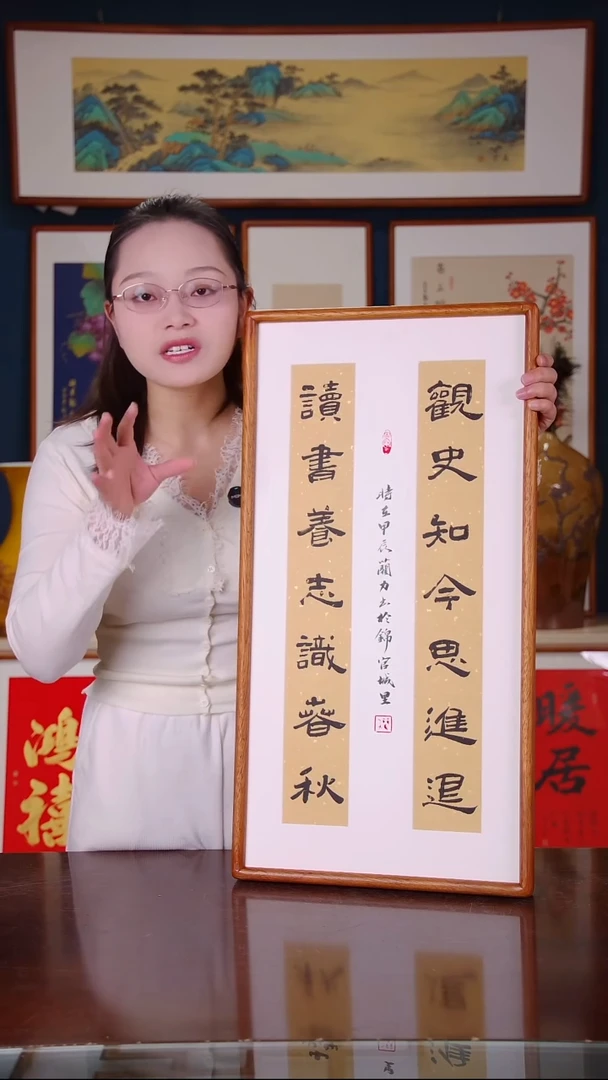 觀史知今思進退
讀書養志識春秋
時在甲辰蘭力書於錦官城里
鴻禧
暖居